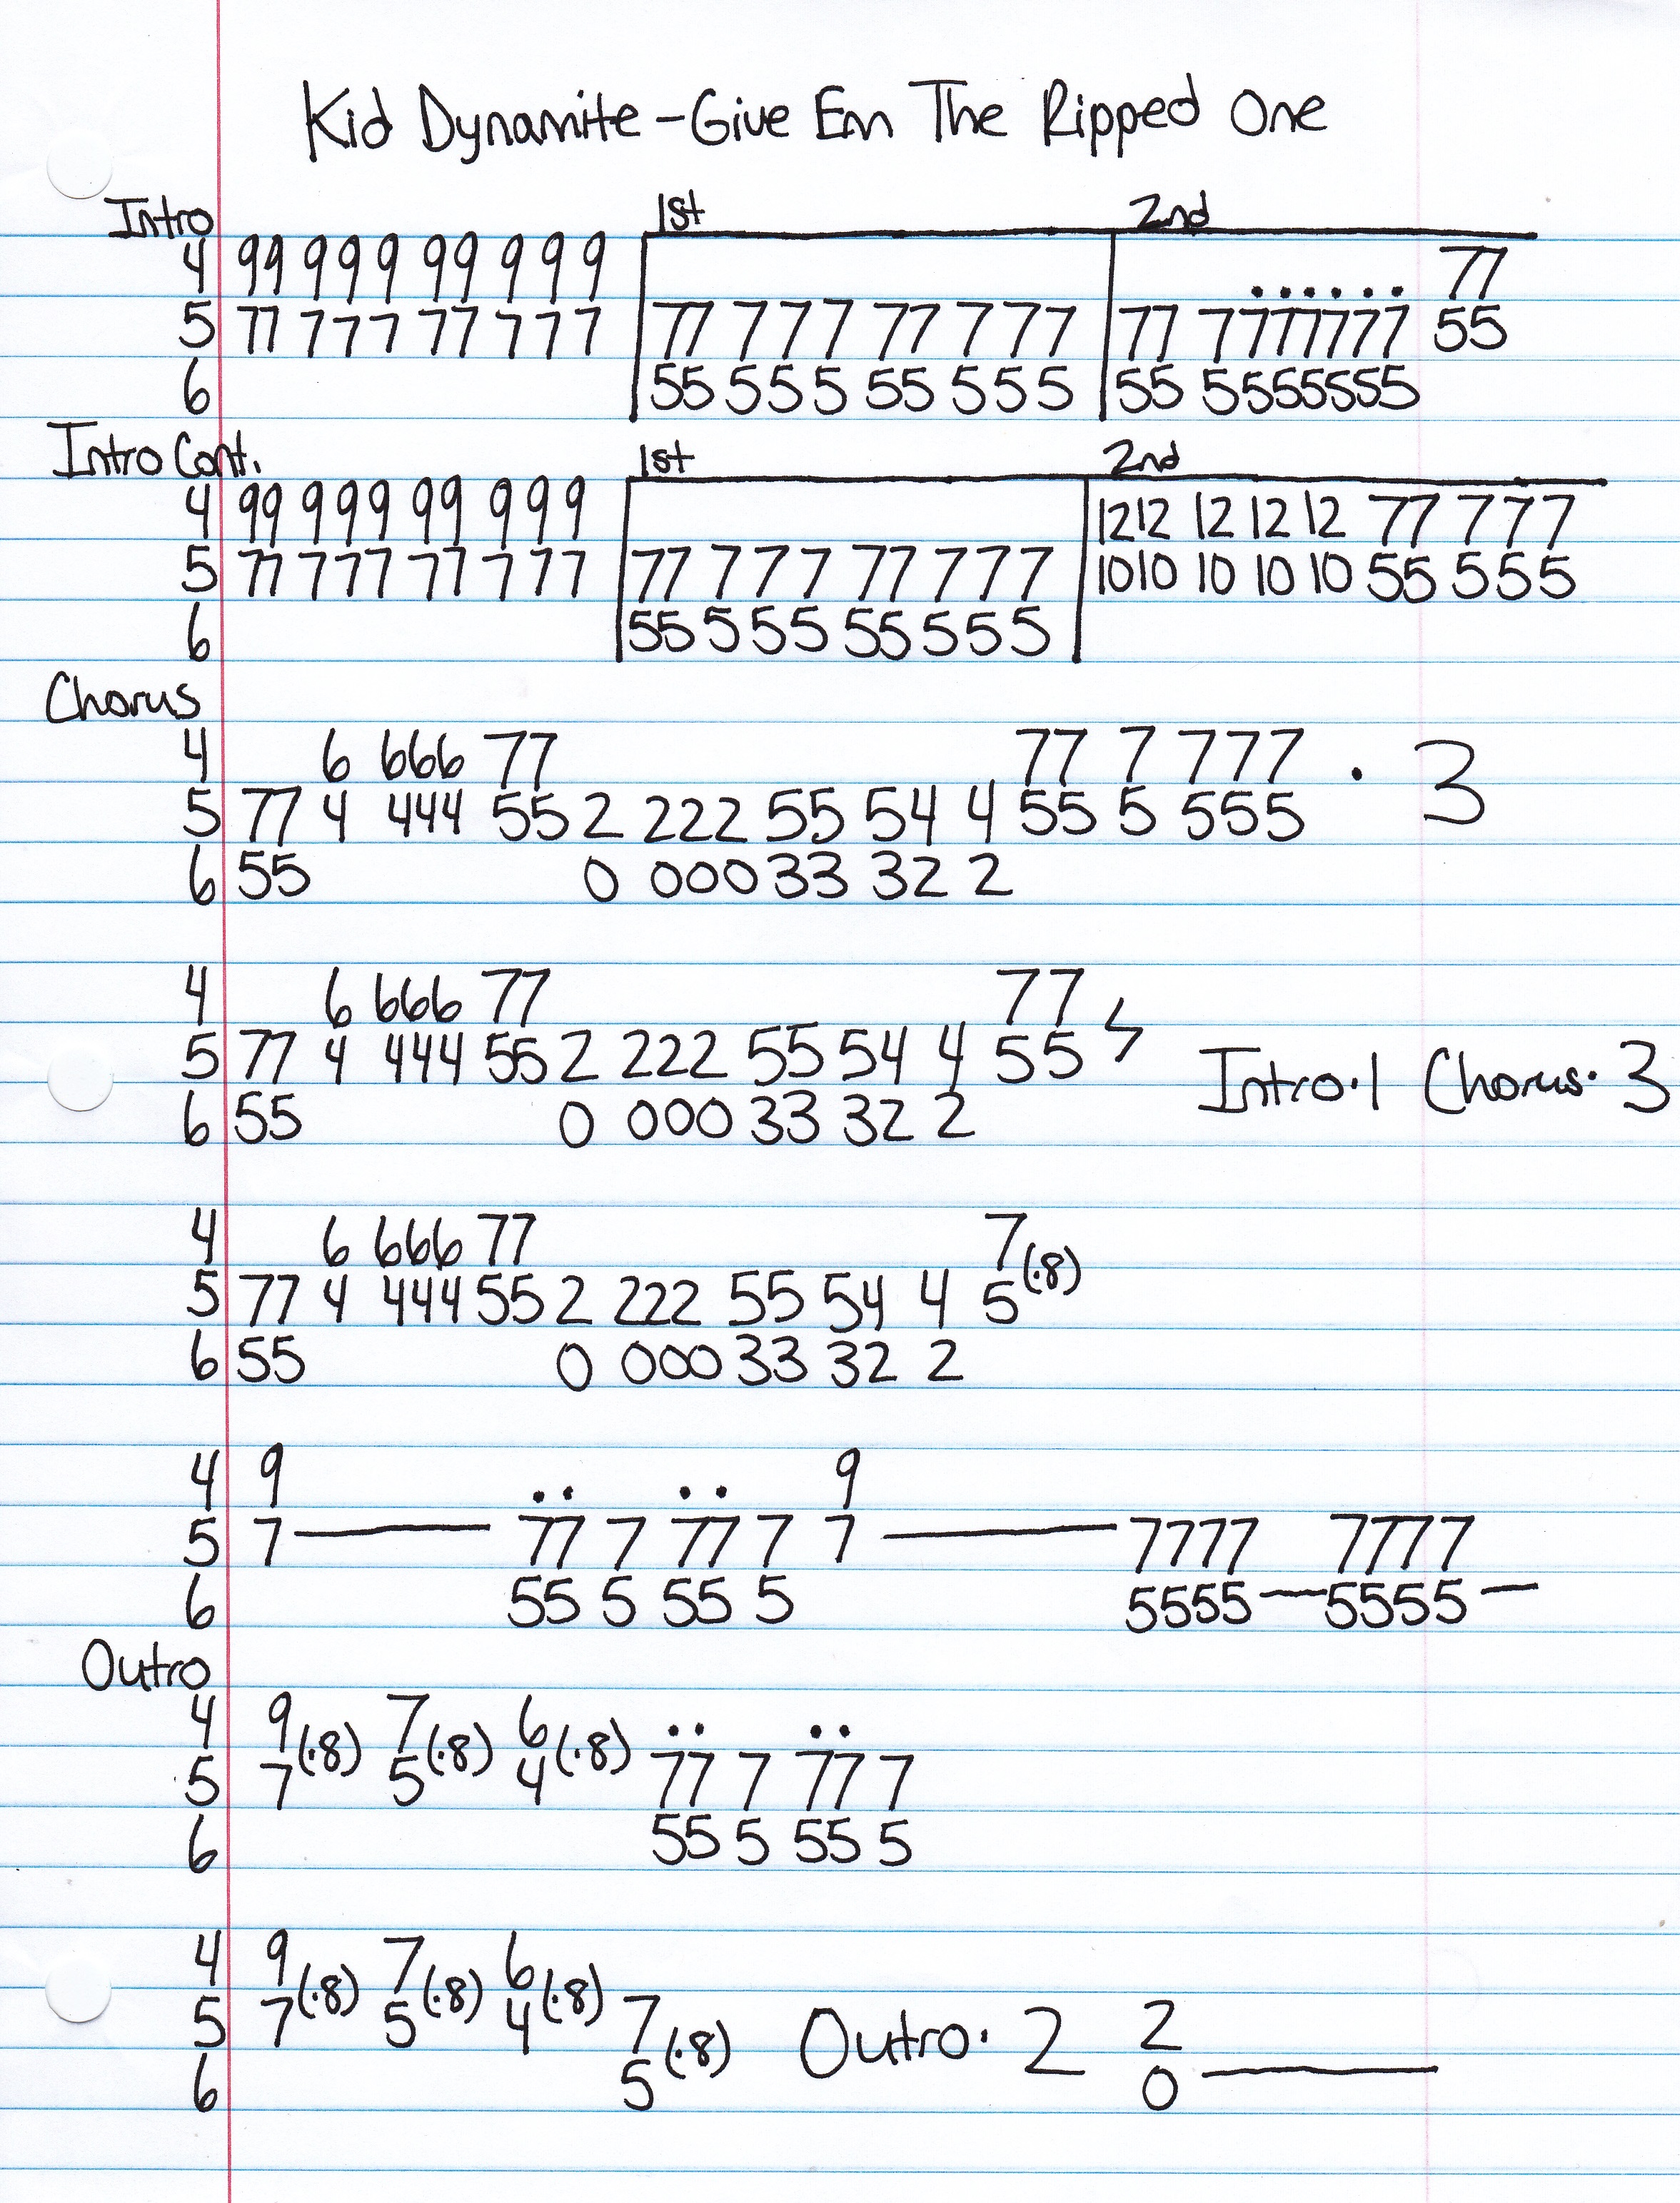 Kid Dynamite - Give Em The Ripped One
Intro 1st 2nd
4 99 999 99 999 ...... 77
5 77 777 77 777 77 777 77 777 77 7777777 55
6 55 555 55 555 55 5555555
Intro Cont. 1st 2nd
4 99 999 99 999 1212 12 12 12 77 777
5 77 777 77 777 77 777 77 777 1010 10 10 10 55 555
6 55 555 55 555
Chorus
4 6 666 77 77 7 777 · 3
5 77 4 444 55 2 222 55 54 4 55 5 555
6 55 0 000 33 32 2
4 6 666 77 77
5 77 4 444 55 2 222 55 54 4 55 Intro·1 Chorus·3
6 55 0 000 33 32 2
4 6 666 77 7
5 77 4 444 55 2 222 55 54 4 5 (·8)
6 55 0 000 33 32 2
4 9 .. .. 9
5 7 — 77 7 77 7 7 — 7777 7777
6 55 5 55 5 5555 — 5555 —
Outro
4 9 7 6 .. ..
5 7 (·8) 5 (·8) 4 (·8) 77 7 77 7
6 55 5 55 5
4 9 7 6
5 7 (·8) 5 (·8) 4 (·8) 7 Outro·2 2
6 5 (·8) 0 —